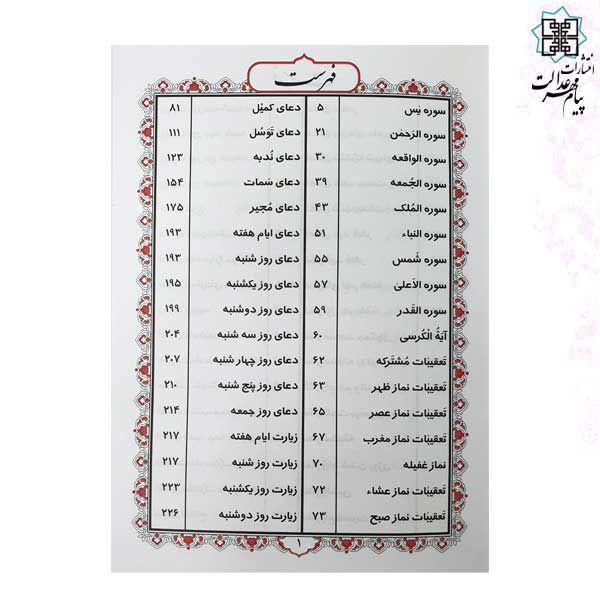 انتشارات
پیام مهر عدالت
فهرست
سوره یس ۵
سوره الرَحمٰن ۲۱
سوره الواقعه ۳۰
سوره الجُمعه ۳۹
سوره المُلک ۴۳
سوره النباء ۵۱
سوره شَمس ۵۵
سوره الاَعلیٰ ۵۷
سوره القَدر ۵۹
آیَةُ الْکُرسی ۶۰
تَعقیبٰات مُشتَرکه ۶۲
تَعقیبٰات نماز ظهر ۶۳
تَعقیبٰات نماز عصر ۶۵
تَعقیبٰات نماز مغرب ۶۷
نماز غفیله ۷۰
تَعقیبٰات نماز عشاء ۷۲
تَعقیبٰات نماز صبح ۷۳
دعای کمیْل ۸۱
دعای تَوَسُل ۱۱۱
دعای نُدبه ۱۲۳
دعای سَمات ۱۵۴
دعای مُجیر ۱۷۵
دعای ایام هفته ۱۹۳
دعای روز شنبه ۱۹۳
دعای روز یکشنبه ۱۹۵
دعای روز دوشنبه ۱۹۹
دعای روز سه شنبه ۲۰۴
دعای روز چهار شنبه ۲۰۷
دعای روز پنج شنبه ۲۱۰
دعای روز جمعه ۲۱۴
زیارت ایام هفته ۲۱۷
زیارت روز شنبه ۲۱۷
زیارت روز یکشنبه ۲۲۳
زیارت روز دوشنبه ۲۲۶
۱